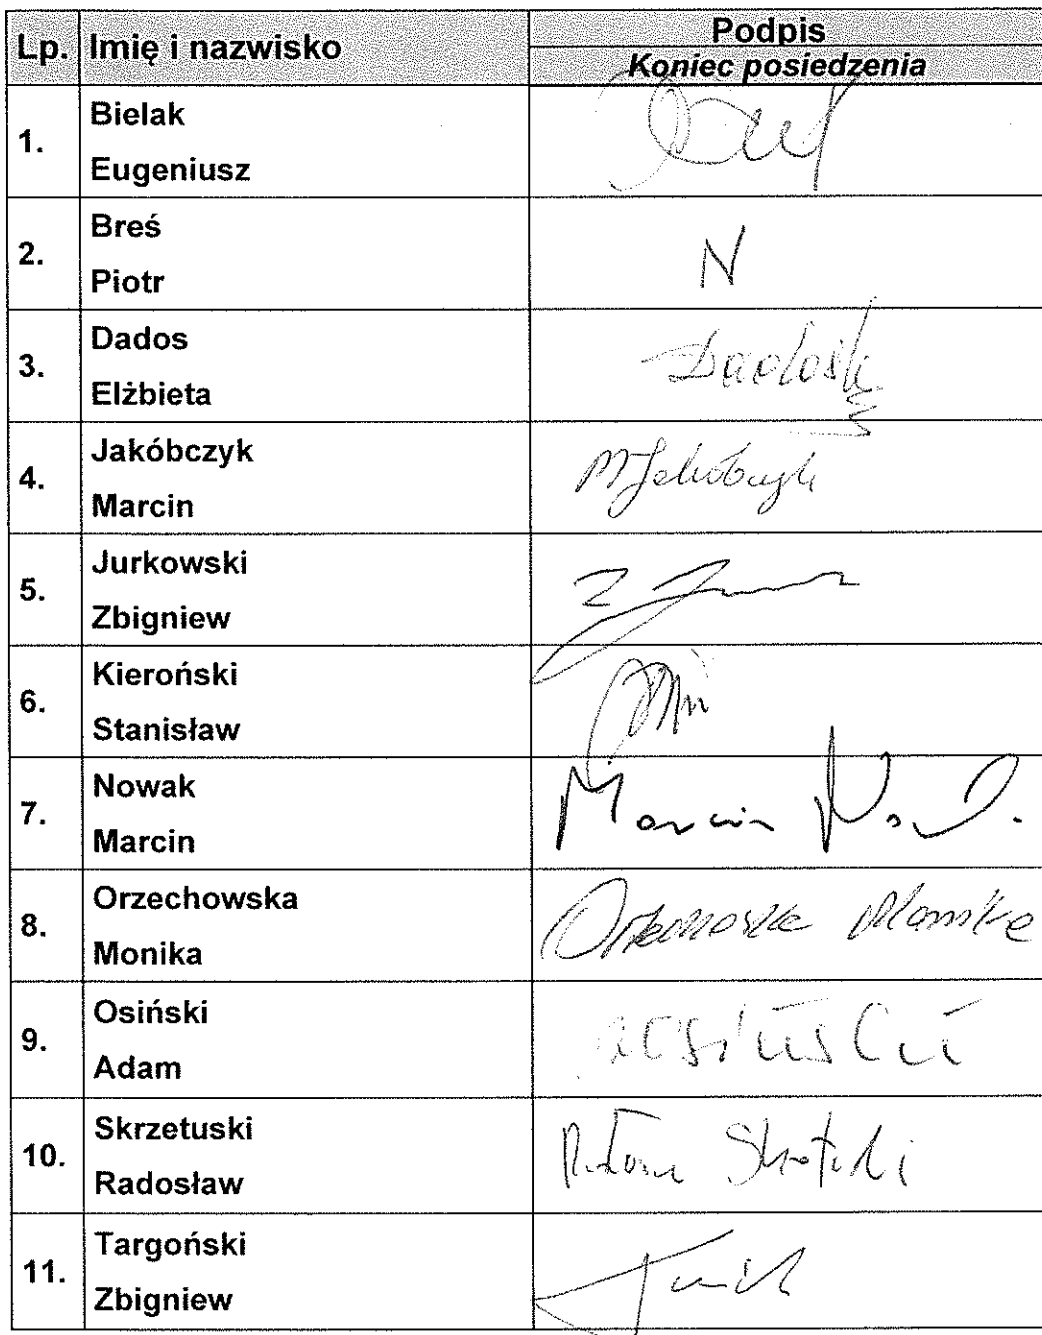 Lp. Imię i nazwisko Podpis
Koniec posiedzenia
1. Bielak
Eugeniusz
2. Breś
Piotr
N
3. Dados
Elżbieta
4. Jakóbczyk
Marcin
M Jakóbczyk
5. Jurkowski
Zbigniew
6. Kieroński
Stanisław
7. Nowak
Marcin
Marcin
8. Orzechowska
Monika
Orzechowska Monika
9. Osiński
Adam
10. Skrzetuski
Radosław
11. Targoński
Zbigniew